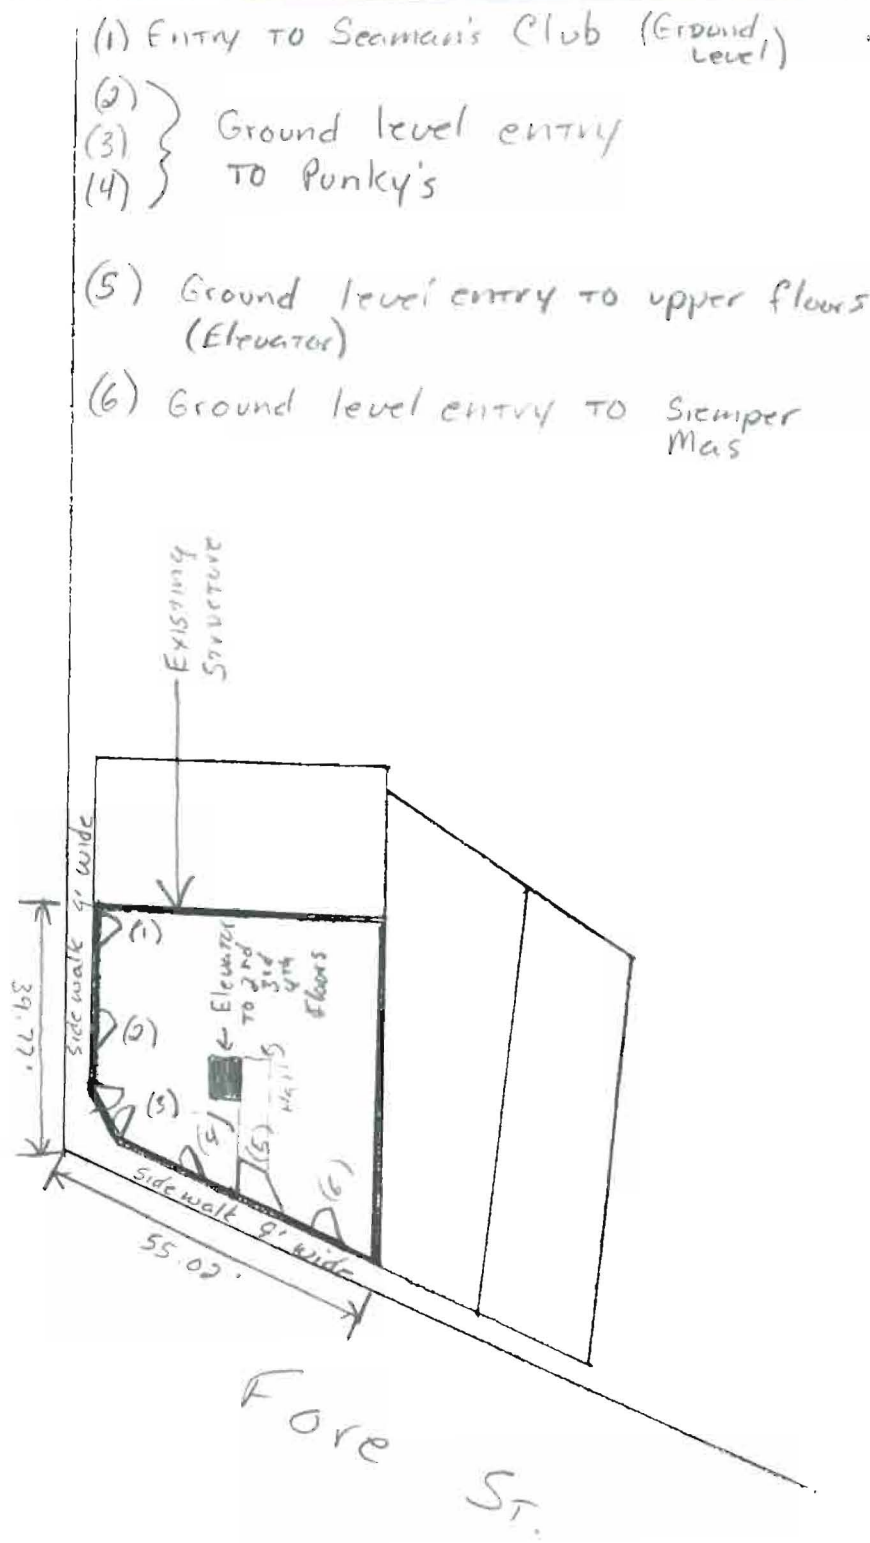 (1) Entry to Seaman's Club (Ground
Level)
(2)
(3)
(4)
Ground level entry
to Punky's
(5) Ground level entry to upper floors
(Elevator)
(6) Ground level entry to Siemper
Mas
Existing
Structure
Side walk 9' wide
39.77'
(1)
(2)
(3)
← Elevator
To 2nd
3rd
4th
floors
Hall
(4)
(5)
(6)
Side walk 9' wide
55.02'
Fore St.